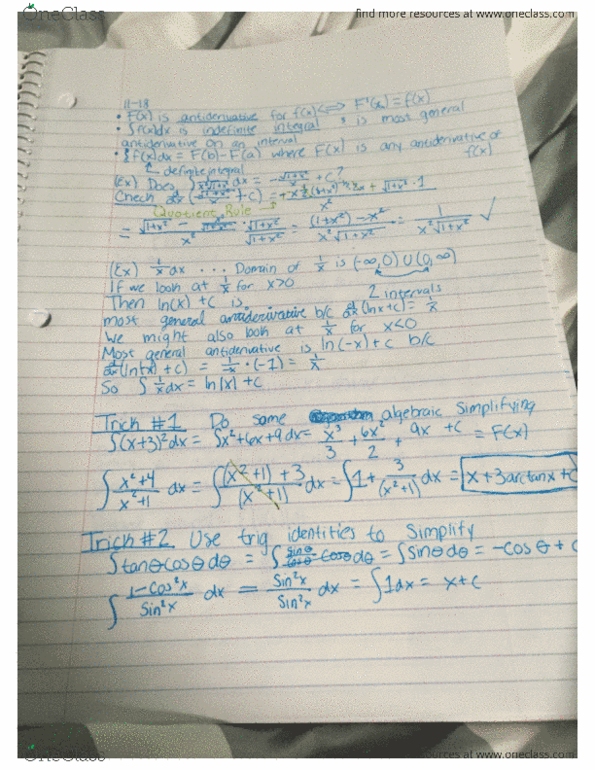 OneClass
find more resources at www.oneclass.com
11-18
• F(x) is antiderivative for f(x) <=> F'(x) = f(x)
• ∫f(x)dx is indefinite integral & is most general
antiderivative on an interval
• ∫f(x)dx = F(b) - F(a) where F(x) is any antiderivative of f(x)
definite integral
(Ex) Does ∫ dx = -√(1+x²)/x + C?
Check
Quotient Rule
= = (1+x²) - x² / x²√(1+x²) = 1 / x²√(1+x²) ✓
(Ex) ∫1/x dx ... Domain of 1/x is (-∞,0) U (0,∞)
If we look at 1/x for x>0
2 intervals
Then ln(x) + C is
most general antiderivative b/c d/dx (lnx + c) = 1/x
We might also look at 1/x for x<0
Most general antiderivative is ln(-x) + C b/c
d/dx (ln(-x) + C) = 1/-x · (-1) = 1/x
So ∫1/x dx = ln|x| + C
Trick #1 Do some algebraic simplifying
∫(x+3)²dx = ∫x²+6x+9dx = x³/3 + 6x²/2 + 9x + C = F(x)
∫ x²+4 / x²+1 dx = ∫ (x²+1)+3 / (x²+1) dx = ∫1 + 3/(x²+1) dx = x + 3arctanx + C
Trick #2 Use trig identities to simplify
∫tanθcosθdθ = ∫ sinθ/cosθ cosθdθ = ∫sinθdθ = -cosθ + C
∫ 1-cos²x / sin²x dx = sin²x / sin²x dx = ∫1dx = x+C
OneClass
resources at www.oneclass.com